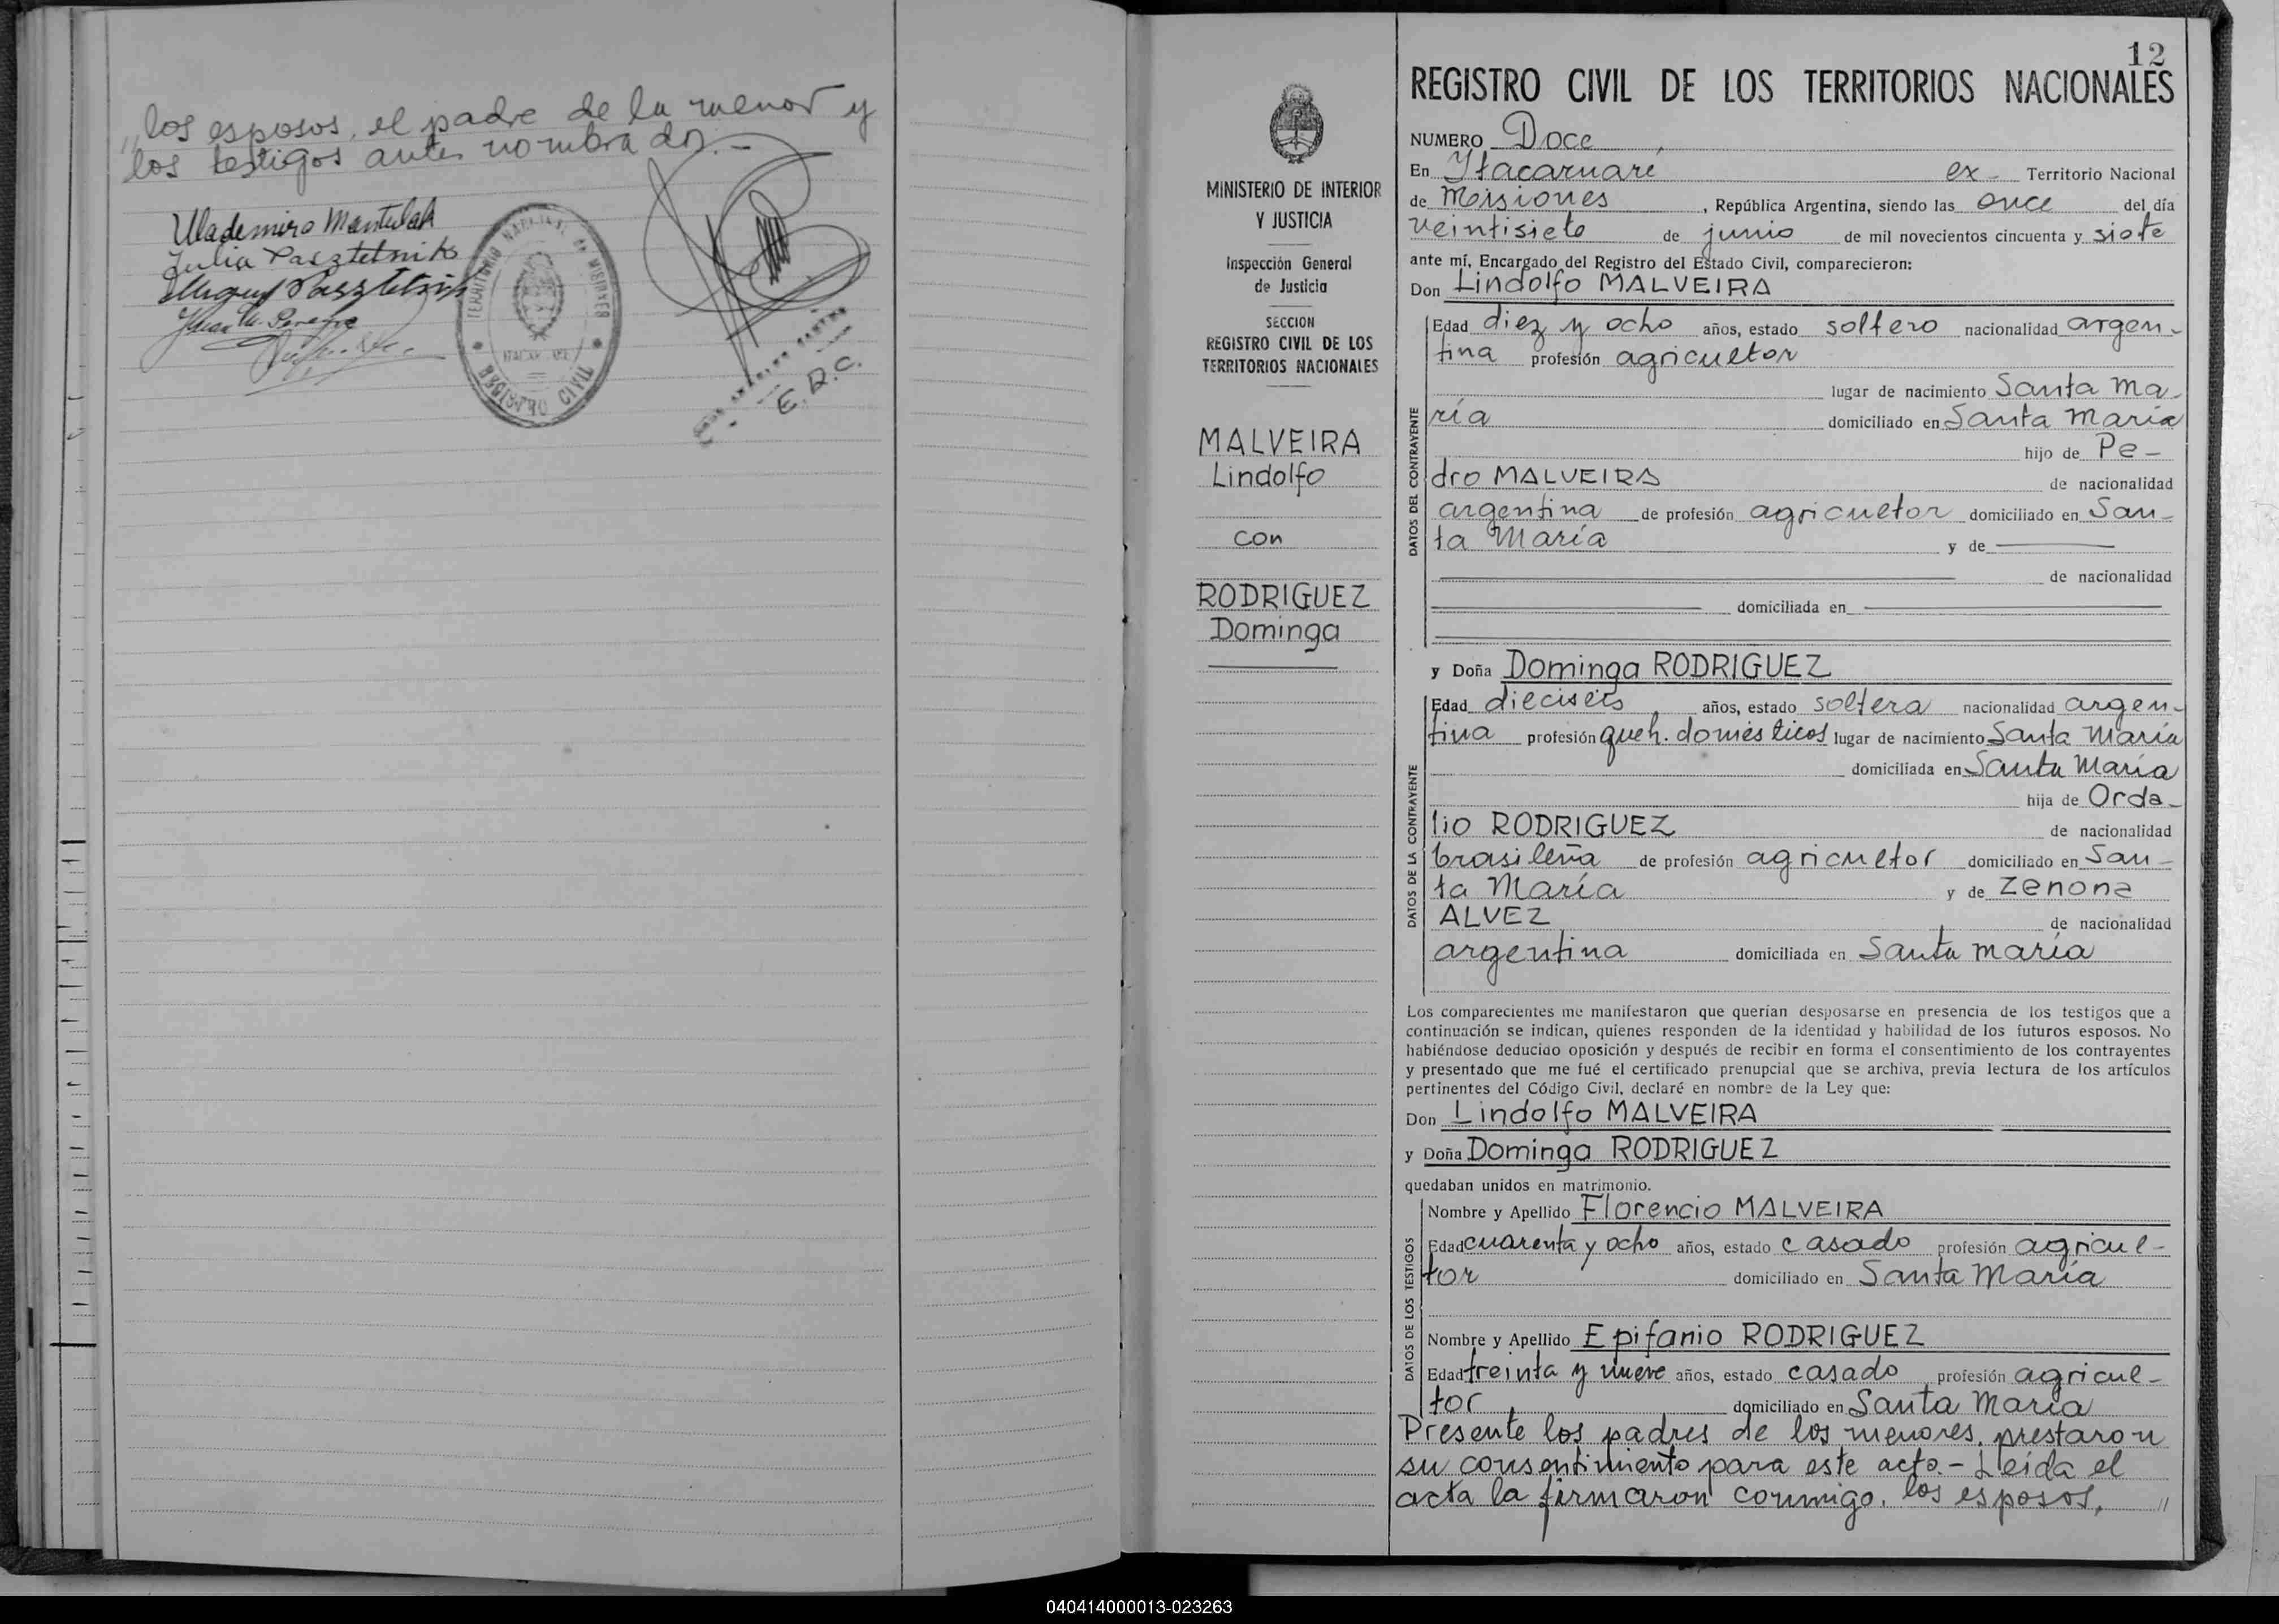 „los esposos, el padre de la menor y
los testigos antes nombrados.-
Wlademiro Mantulak
Julia Pasztetnik
Miguel Pasztetnik
Juan
TERRITORIO NACIONAL DE MISIONES
REGISTRO CIVIL
E.R.C.
MINISTERIO DE INTERIOR
Y JUSTICIA
Inspección General
de Justicia
SECCION
REGISTRO CIVIL DE LOS
TERRITORIOS NACIONALES
MALVEIRA
Lindolfo
con
RODRIGUEZ
Dominga
12
REGISTRO CIVIL DE LOS TERRITORIOS NACIONALES
NUMERO Doce
En Itacaruaré ex- Territorio Nacional
de Misiones, República Argentina, siendo las once del día
veintisiete de junio de mil novecientos cincuenta y siete
ante mí, Encargado del Registro del Estado Civil, comparecieron:
Don Lindolfo MALVEIRA
DATOS DEL CONTRAYENTE
Edad diez y ocho años, estado soltero nacionalidad argen-
tina profesión agricultor
lugar de nacimiento Santa Ma-
ría domiciliado en Santa María
hijo de Pe-
dro MALVEIRA de nacionalidad
argentina de profesión agricultor domiciliado en San-
ta María y de
de nacionalidad
domiciliada en
y Doña Dominga RODRIGUEZ
DATOS DE LA CONTRAYENTE
Edad dieciseis años, estado soltera nacionalidad argen-
tina profesión queh. domésticos lugar de nacimiento Santa María
domiciliada en Santa María
hija de Orda-
lio RODRIGUEZ de nacionalidad
brasileña de profesión agricultor domiciliado en San-
ta María y de Zenona
ALVEZ de nacionalidad
argentina domiciliada en Santa María
Los comparecientes me manifestaron que querían desposarse en presencia de los testigos que a
continuación se indican, quienes responden de la identidad y habilidad de los futuros esposos. No
habiéndose deducido oposición y después de recibir en forma el consentimiento de los contrayentes
y presentado que me fué el certificado prenupcial que se archiva, previa lectura de los artículos
pertinentes del Código Civil, declaré en nombre de la Ley que:
Don Lindolfo MALVEIRA
y Doña Dominga RODRIGUEZ
quedaban unidos en matrimonio.
DATOS DE LOS TESTIGOS
Nombre y Apellido Florencio MALVEIRA
Edad cuarenta y ocho años, estado casado profesión agricul-
tor domiciliado en Santa María
Nombre y Apellido Epifanio RODRIGUEZ
Edad treinta y nueve años, estado casado profesión agricul-
tor domiciliado en Santa María
Presente los padres de los menores, prestaron
su consentimiento para este acto.- Leída el
acta la firmaron conmigo, los esposos, //
040414000013-023263